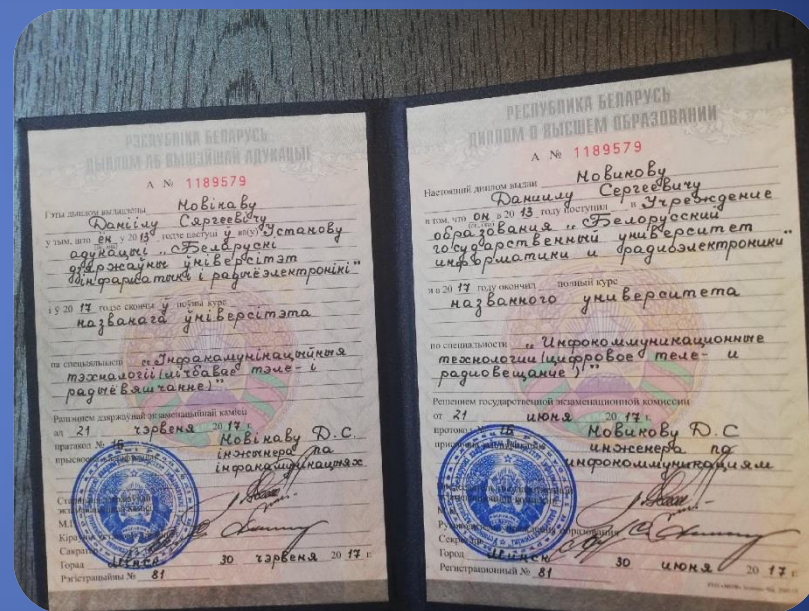 РЭСПУБЛІКА БЕЛАРУСЬ
ДЫПЛОМ АБ ВЫШЭЙШАЙ АДУКАЦЫІ
А № 1189579
Гэты дыплом выдадзены Новікаву
Даніілу Сяргеевічу
у тым, што ён у 2013 годзе паступіў ва(у) Установу
адукацыі „Беларускі
дзяржаўны ўніверсітэт
інфарматыкі і радыёэлектронікі"
і ў 2017 годзе скончыў поўны курс
названага ўніверсітэта
па спецыяльнасці „Інфакамунікацыйныя
тэхналогіі (лічбавае тэле- і
радыёвяшчанне)"
Рашэннем дзяржаўнай экзаменацыйнай камісіі
ад 21 чэрвеня 2017 г.
пратакол № 16 Новікаву Д.С.
інжынера па
інфакамунікацыях
М.П.
Сакратар
Горад Мінск 30 чэрвеня 2017 г.
Рэгістрацыйны № 81
РЕСПУБЛИКА БЕЛАРУСЬ
ДИПЛОМ О ВЫСШЕМ ОБРАЗОВАНИИ
А № 1189579
Настоящий диплом выдан Новикову
Даниилу Сергеевичу
в том, что он в 2013 году поступил в Учреждение
образования „Белорусский
государственный университет
информатики и радиоэлектроники"
и в 2017 году окончил полный курс
названного университета
по специальности „Инфокоммуникационные
технологии (цифровое теле- и
радиовещание)"
Решением государственной экзаменационной комиссии
от 21 июня 2017 г.
протокол № 16 Новикову Д.С
инженера по
инфокоммуникациям
Город Минск 30 июня 2017 г.
Регистрационный № 81